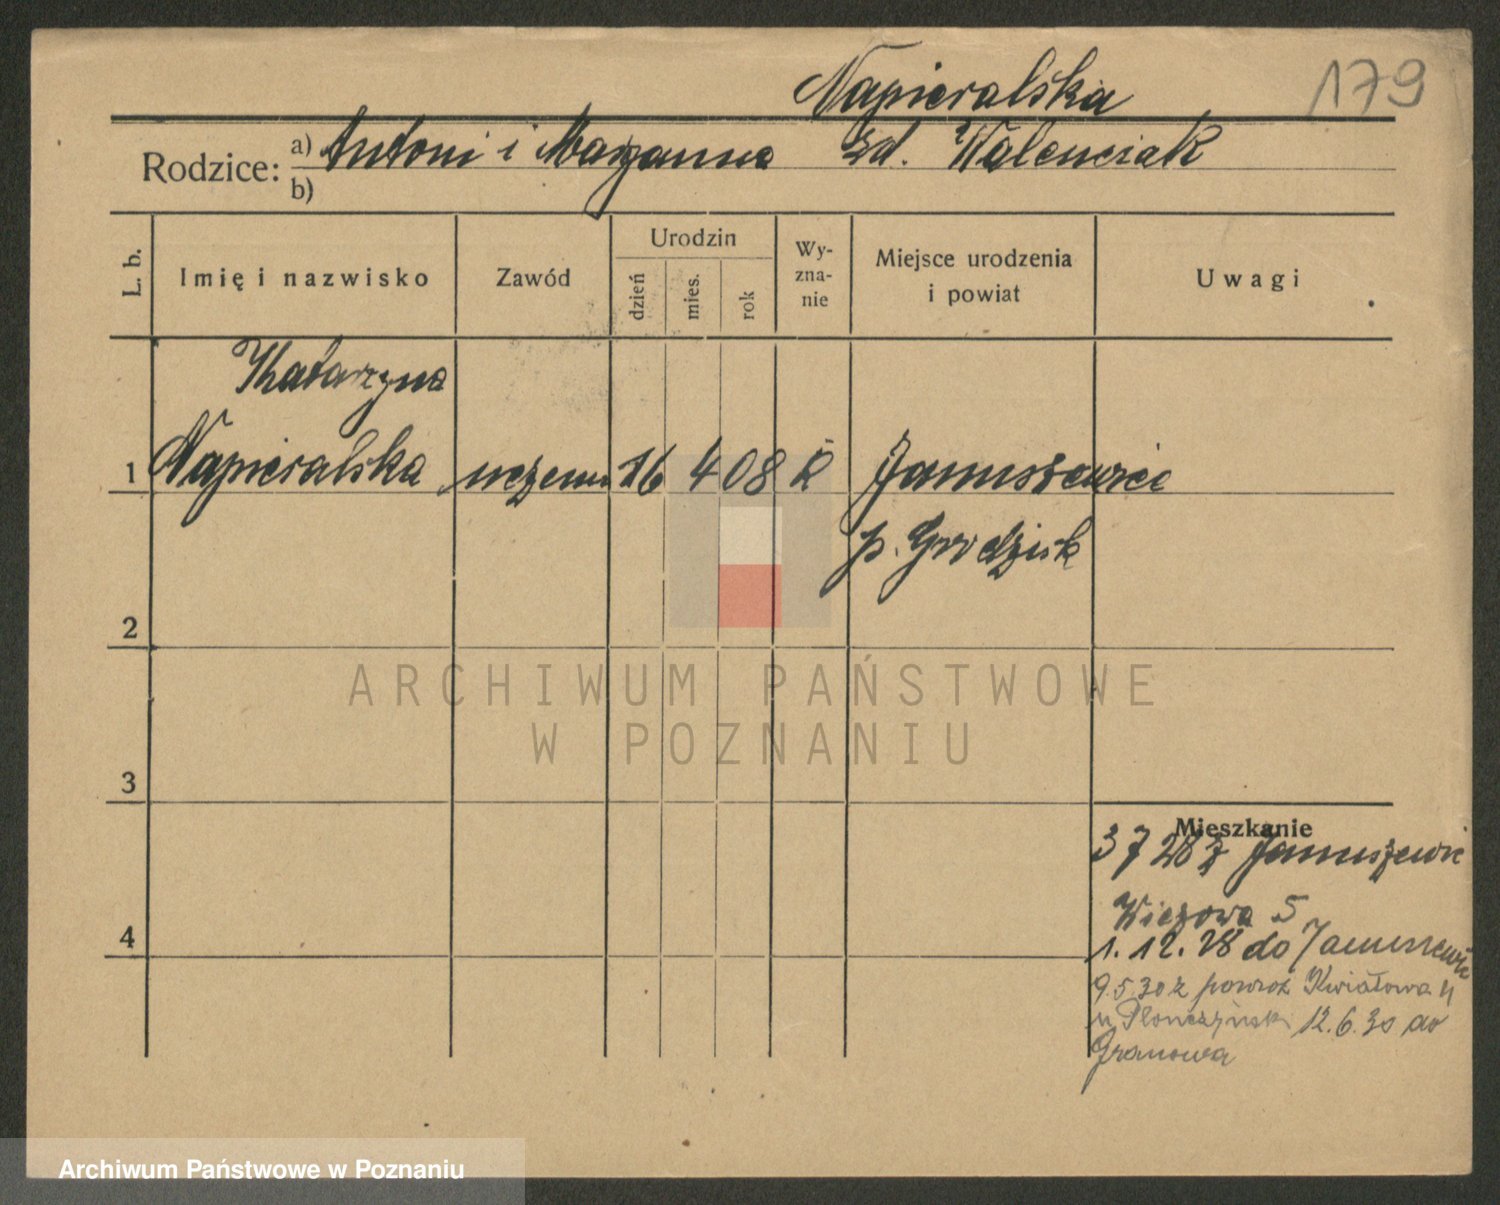 Napieralska
179
Rodzice: a) Antoni i Maryanna zd. Walenciak
b)
L. b.
Imię i nazwisko
Zawód
Urodzin
dzień
mies.
rok
Wy-
zna-
nie
Miejsce urodzenia
i powiat
Uwagi
Katarzyna
1 Napieralska uczenn 16 4 08 k Januszewice
p. Grodzisk
2
3
4
Mieszkanie
3 7 28 z Januszewic
Wiezowa 5
1. 12. 28 do Januszewic
9.5.30 z powrot Kwiatowa 4
u Plonczynsk 12.6.30 do
Granowa
ARCHIWUM PAŃSTWOWE
W POZNANIU
Archiwum Państwowe w Poznaniu